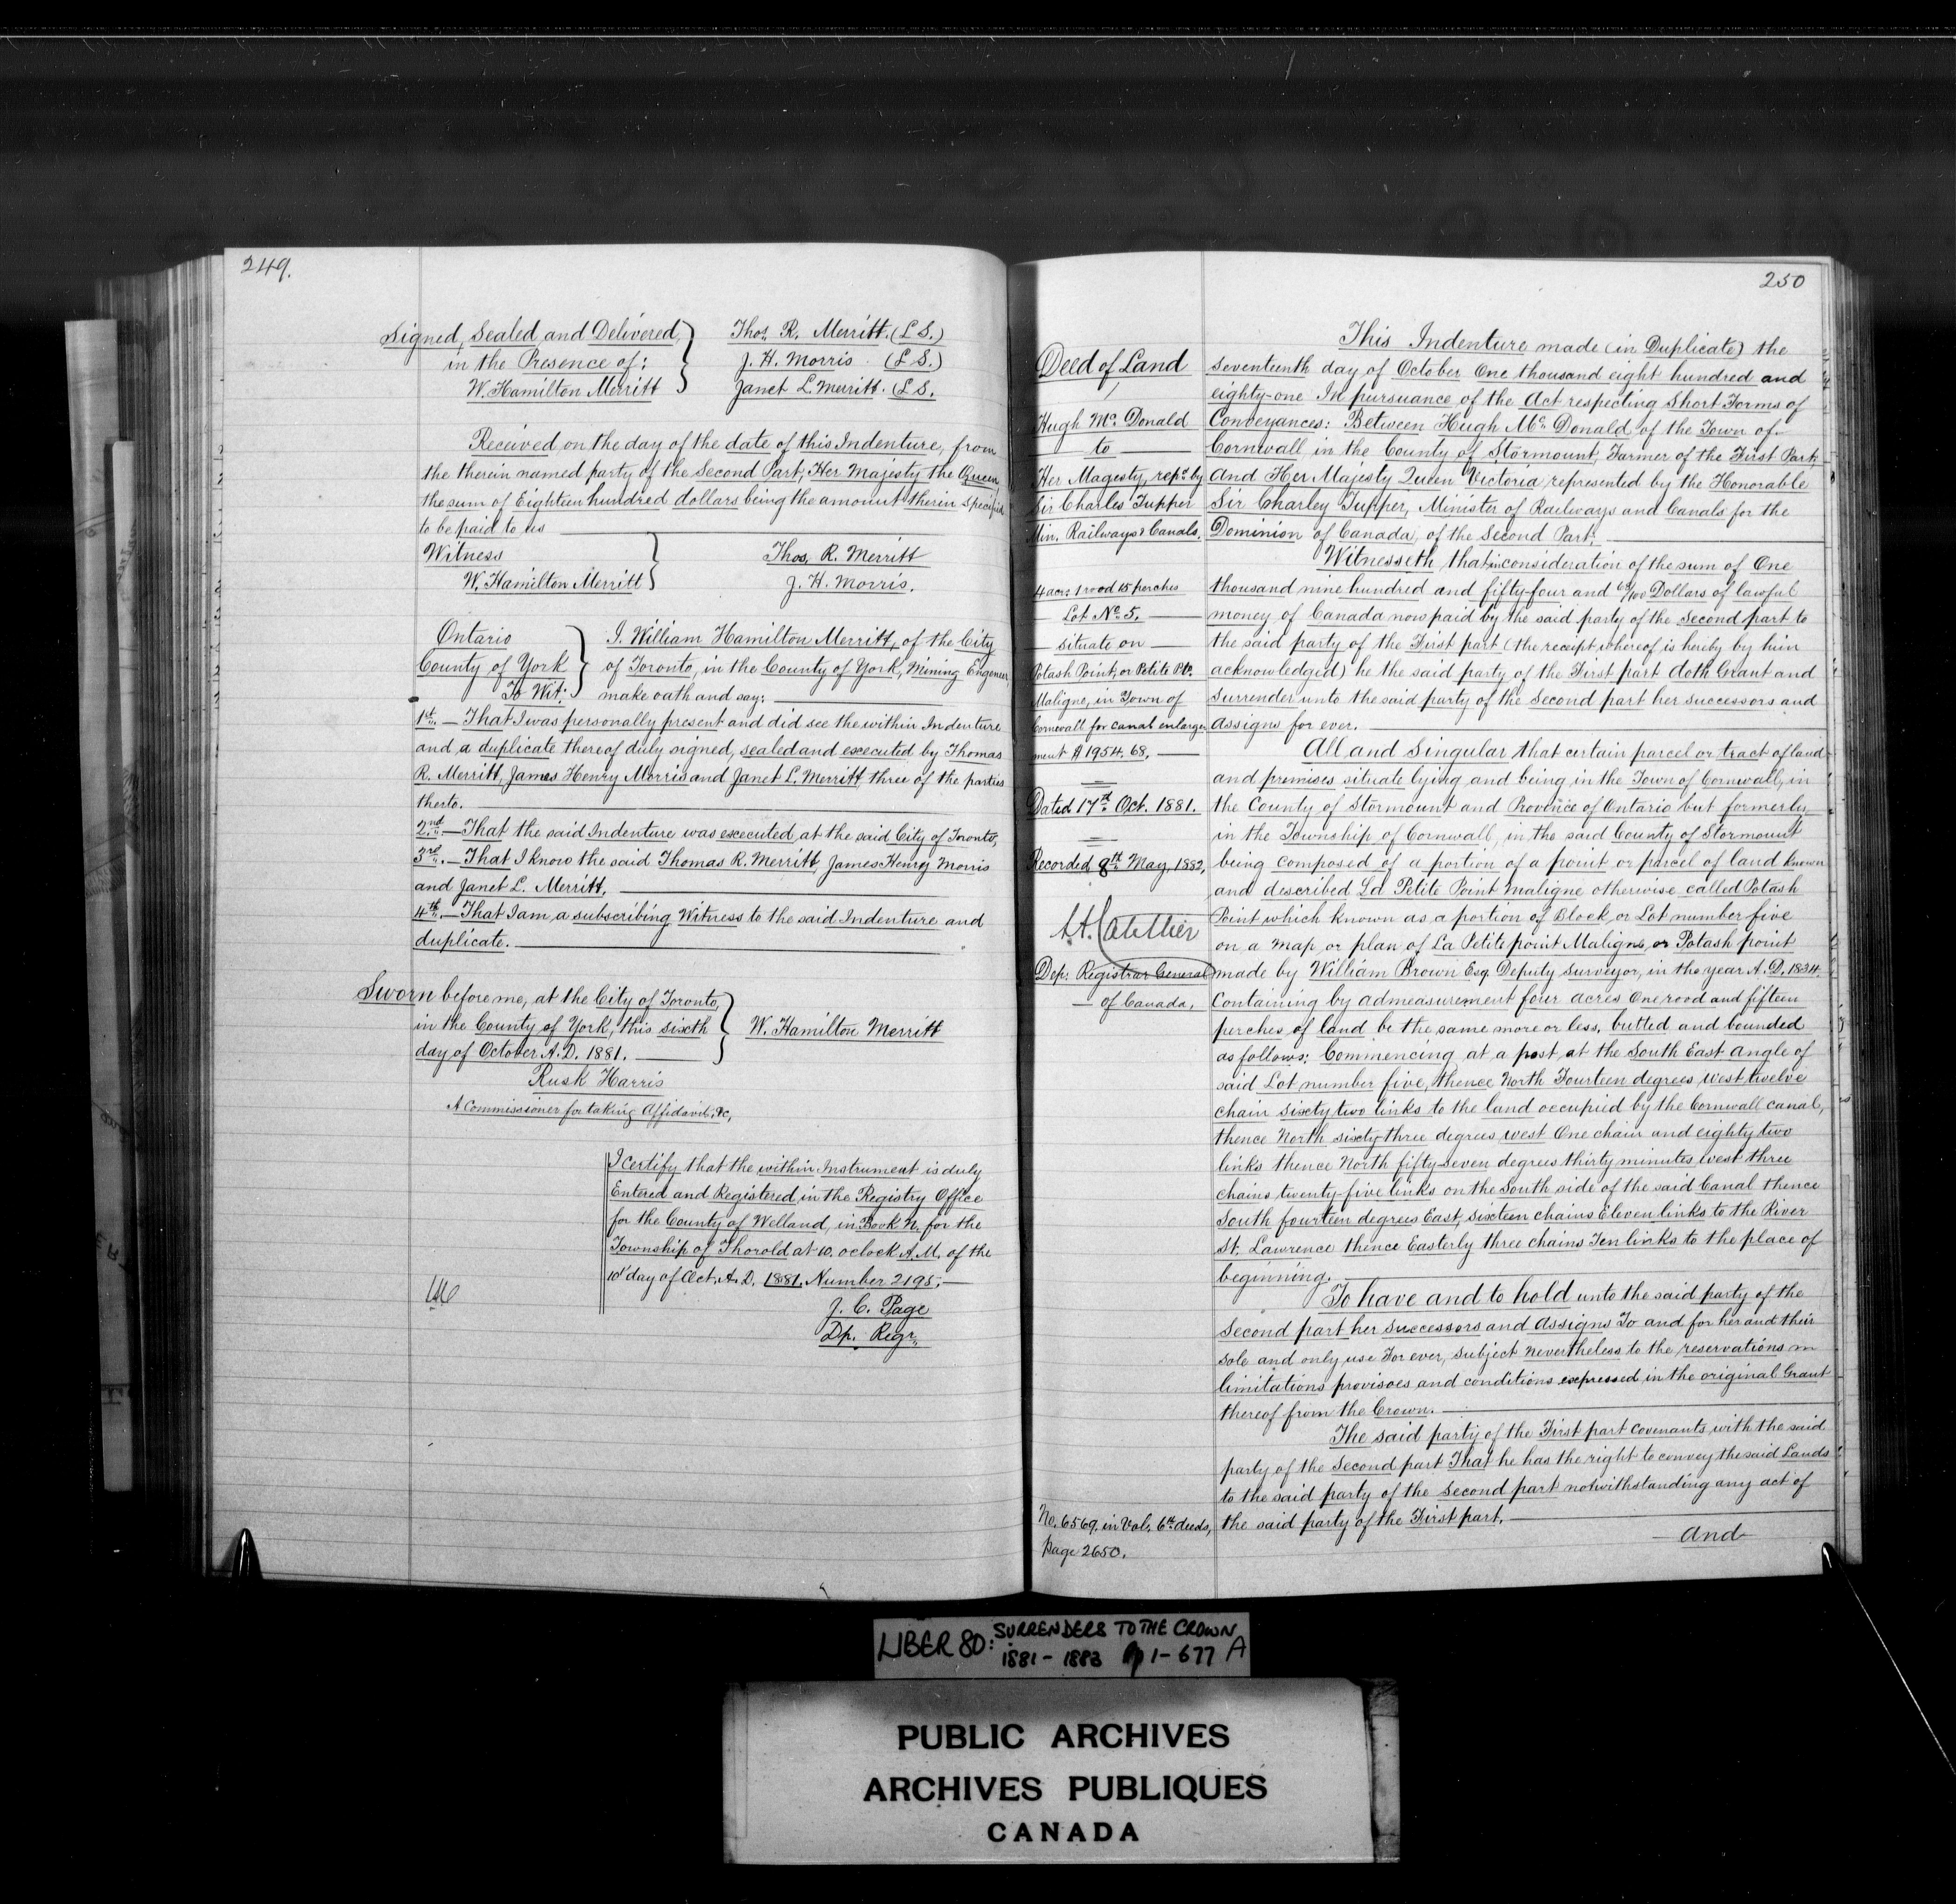 249.
Signed, Sealed and Delivered
in the Presence of:
W. Hamilton Merritt
Thos. R. Merritt. (L S.)
J. H. Morris (L S.)
Janet L. Merritt. (L S.
Received on the day of the date of this Indenture, from
the therein named party of the Second Part, Her Majesty the Queen
the sum of Eighteen hundred dollars being the amount therein specified
to be paid to us
Witness
W. Hamilton Merritt
Thos. R. Merritt
J. H. Morris.
Ontario
County of York
To Wit:
I. William Hamilton Merritt, of the City
of Toronto, in the County of York, Mining Engeneer
make oath and say:
1st. — That I was personally present and did see the within Indenture
and a duplicate thereof duly signed, sealed and excecuted by Thomas
R. Merritt, James Henry Morris and Janet L. Merritt, three of the parties
therto.
2nd. — That the said Indenture was excecuted at the said City of Toronto,
3rd. — That I know the said Thomas R. Merritt, James Henry Morris
and Janet L. Merritt.
4th. — That I am a subscribing Witness to the said Indenture and
duplicate.
Sworn before me, at the City of Toronto,
in the County of York, this sixth
day of October A.D. 1881.
W. Hamilton Merritt
Rusk Harris
A Commissioner for taking Affidavits, &c,
I certify that the within Instrument is duly
Entered and Registered in the Registry Office
for the County of Welland, in Book N, for the
Township of Thorold at 10. oclock A.M. of the
10th day of Oct. A.D. 1881. Number 2195.
J. C. Page
Dp. Regr.
250
Deed of Land
Hugh Mc. Donald
to
Her Magesty, repd. by
Sir Charles Tupper
Min. Railways & Canals.
4 acrs 1 rood 15 perches
Lot No. 5.
situate on
Potash Point, or Petite Pte.
Maligne, in Town of
Cornwall for canal enlarge-
ment $1954.68.
Dated 17th Oct. 1881.
Recorded 8th May, 1882,
Dep. Registrar General
of Canada.
No. 6569. in Vol. 6th deeds,
Page 2650.
This Indenture made (in Duplicate) the
Seventeenth day of October One thousand eight hundred and
eighty-one In pursuance of the Act respecting Short Forms of
Conveyances: Between Hugh Mc. Donald of the Town of
Cornwall in the County of Stormount, Farmer of the First Part
And Her Majesty Queen Victoria represented by the Honorable
Sir Charley Tupper, Minister of Railways and Canals for the
Dominion of Canada, of the Second Part.
Witnesseth that in consideration of the sum of One
thousand nine hundred and fifty-four and 68/100 Dollars of lawful
money of Canada now paid by the said party of the Second part to
the said party of the First part (the receipt whereof is hereby by him
acknowledged) he the said party of the First part doth Grant and
Surrender unto the said party of the Second part her successors and
Assigns for ever.
All and Singular that certain parcel or tract of land
and premises situate lying and being in the Town of Cornwall, in
the County of Stormount and Province of Ontario but formerly
in the Township of Cornwall, in the said County of Stormount
being composed of a portion of a point or parcel of land known
and described La Petite Point Maligne otherwise called Potash
Point which known as a portion of Block, or Lot number five
on a map or plan of La Petite point Maligne, or Potash point
made by William Brown Esq. Deputy Surveyor, in the year A.D. 1834.
Containing by admeasurement four acres One rood and fifteen
perches of land be the same more or less, butted and bounded
as follows: Commencing at a post at the South East angle of
said Lot number five, thence North Fourteen degrees West twelve
chain sixty two links to the land occupied by the Cornwall canal,
thence North sixty-three degrees west One chain and eighty two
links thence North fifty-seven degrees thirty minutes west three
chains twenty-five links on the South side of the said Canal thence
South fourteen degrees East, sixteen chains Eleven links to the River
St. Lawrence thence Easterly three chains Ten links to the place of
beginning.
To have and to hold unto the said party of the
Second part her successors and Assigns To and for her and their
sole and only use For ever, subject nevertheless to the reservations
limitations provisoes and conditions expressed in the original Grant
thereof from the Crown.
The said party of the First part covenants with the said
party of the Second part That he has the right to convey the said Lands
to the said party of the Second part notwithstanding any act of
the said party of the First part.
And
LIBER 80: SURRENDERS TO THE CROWN
1881 - 1883 pp 1 - 677 A
PUBLIC ARCHIVES
ARCHIVES PUBLIQUES
CANADA